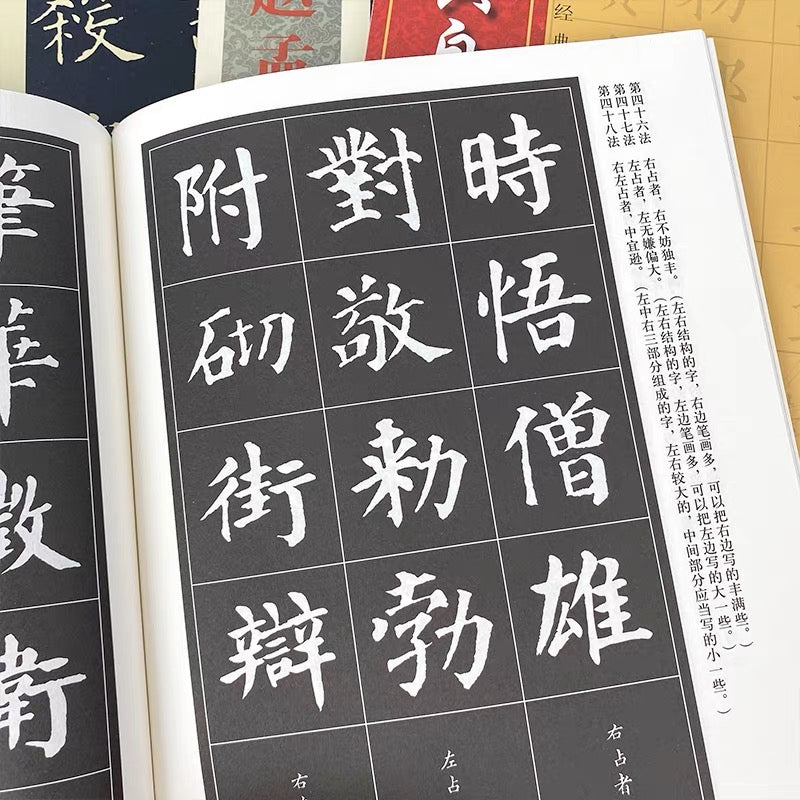 殺
赵孟
经典
第四十六法 右占者，右不妨独丰。（左右结构的字，右边笔画多，可以把右边写的丰满些。）
第四十七法 左占者，左无嫌偏大。（左右结构的字，左边笔画多，可以把左边写的大一些。）
第四十八法 右左占者，中宜逊。（左中右三部分组成的字，左右较大的，中间部分应当写的小一些。）
時悟僧雄
右占者
對敬勑勃
左占
附砌街辯
右
筆
華
衛